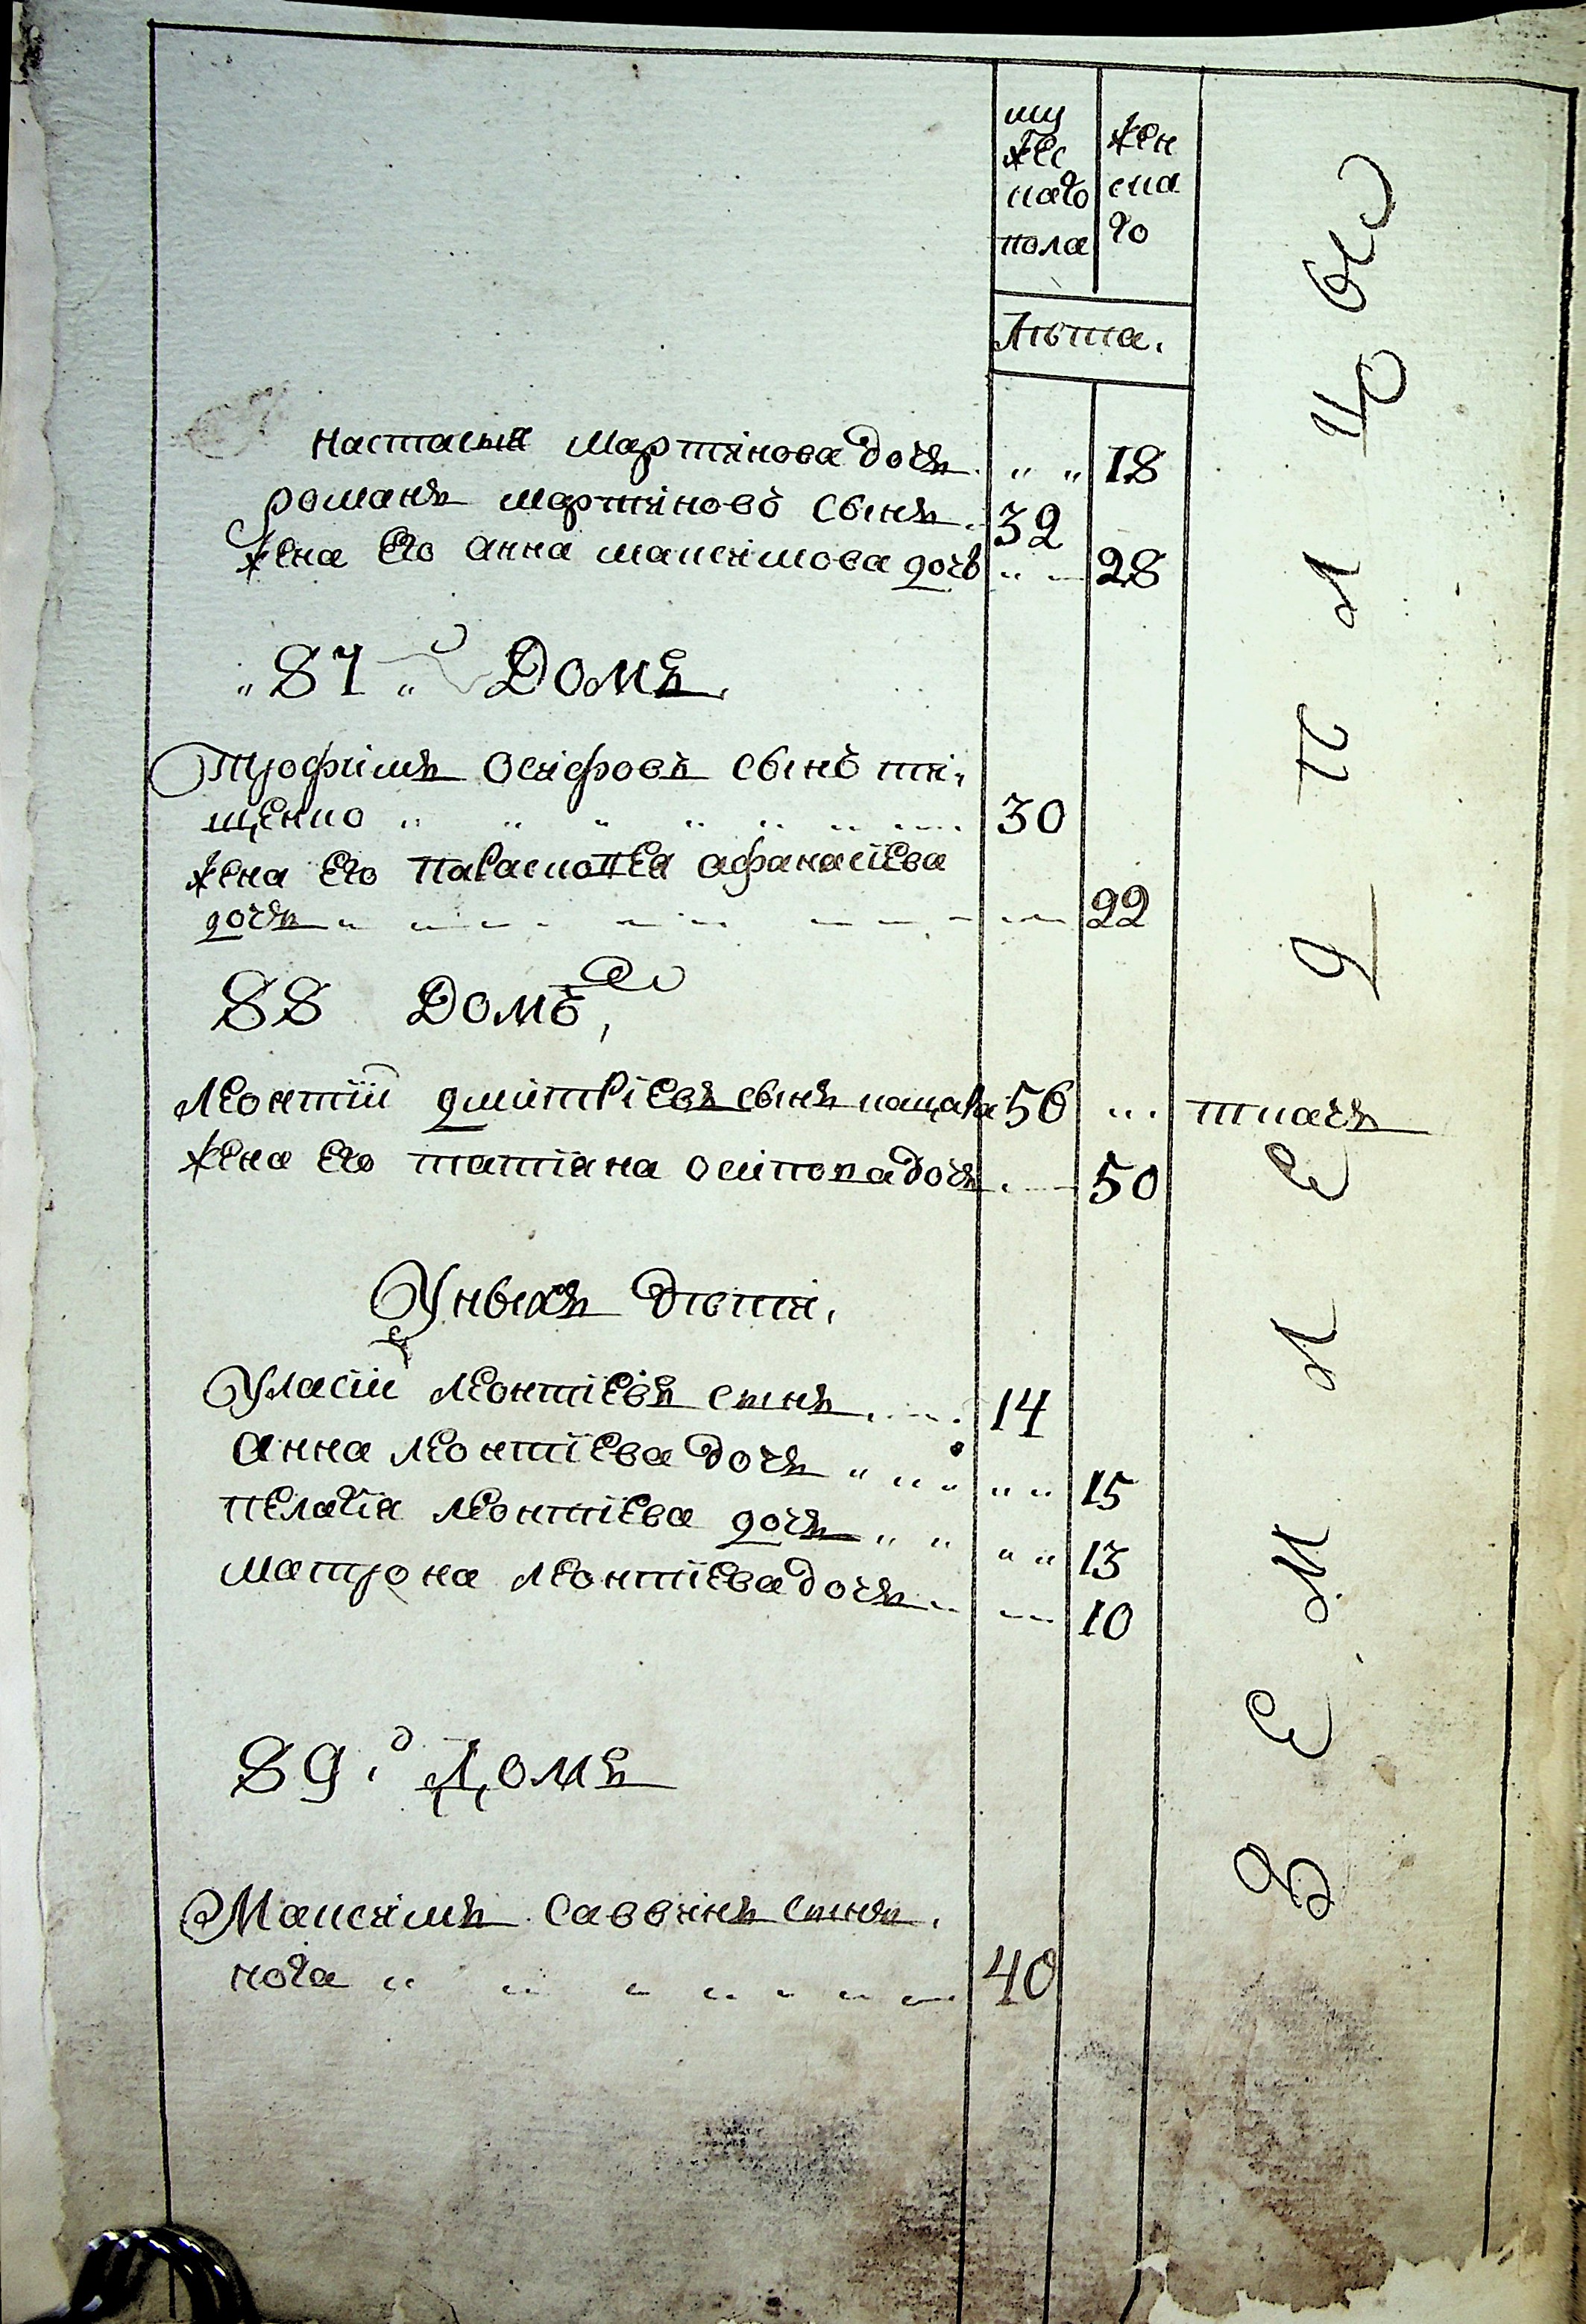 му
жес
каго
пола
жен
ска
го
Лѣта.
Настасья Мартинова дочь „ „ 18
романъ мартиновъ сынъ. 32
жена его анна максимова дочь „ — 28
„ 87 „ Домъ.
Трофимъ Осифовъ сынъ ти,
щенко „ „ „ „ „ „ 30
жена его параскопѣя афанасіева
дочь 22
88 Домъ,
Леонтій дмитріевъ сынъ кацара 56 ... ткачъ
жена его татіана осипова дочь 50
У ныхъ дѣти.
Уласій Леонтіевъ сынъ 14
анна леонтіева дочь „ „ „ „ 15
пелагія леонтіева дочь „ „ „ „ 13
матрона леонтіева дочь 10
89. Домъ
Максимъ саввинъ сынъ.
нога „ „ „ 40